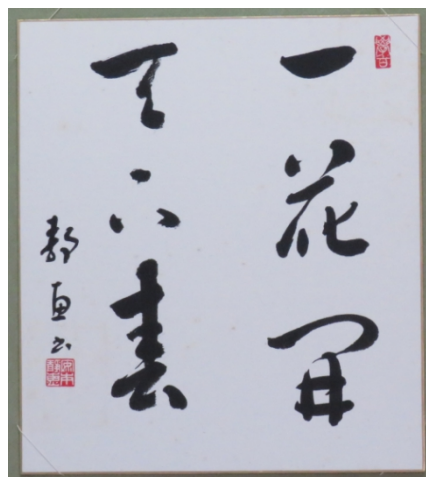 一花開
天下春
静恵書